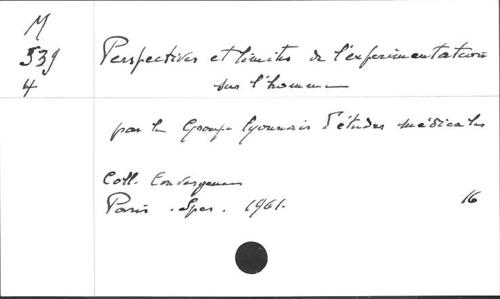 M
539
4
Perspectives et limites de l'expérimentation
sur l'homme
par le Groupe lyonnais d'études médicales
Coll. Convergences
Paris. Spes. 1961.
16